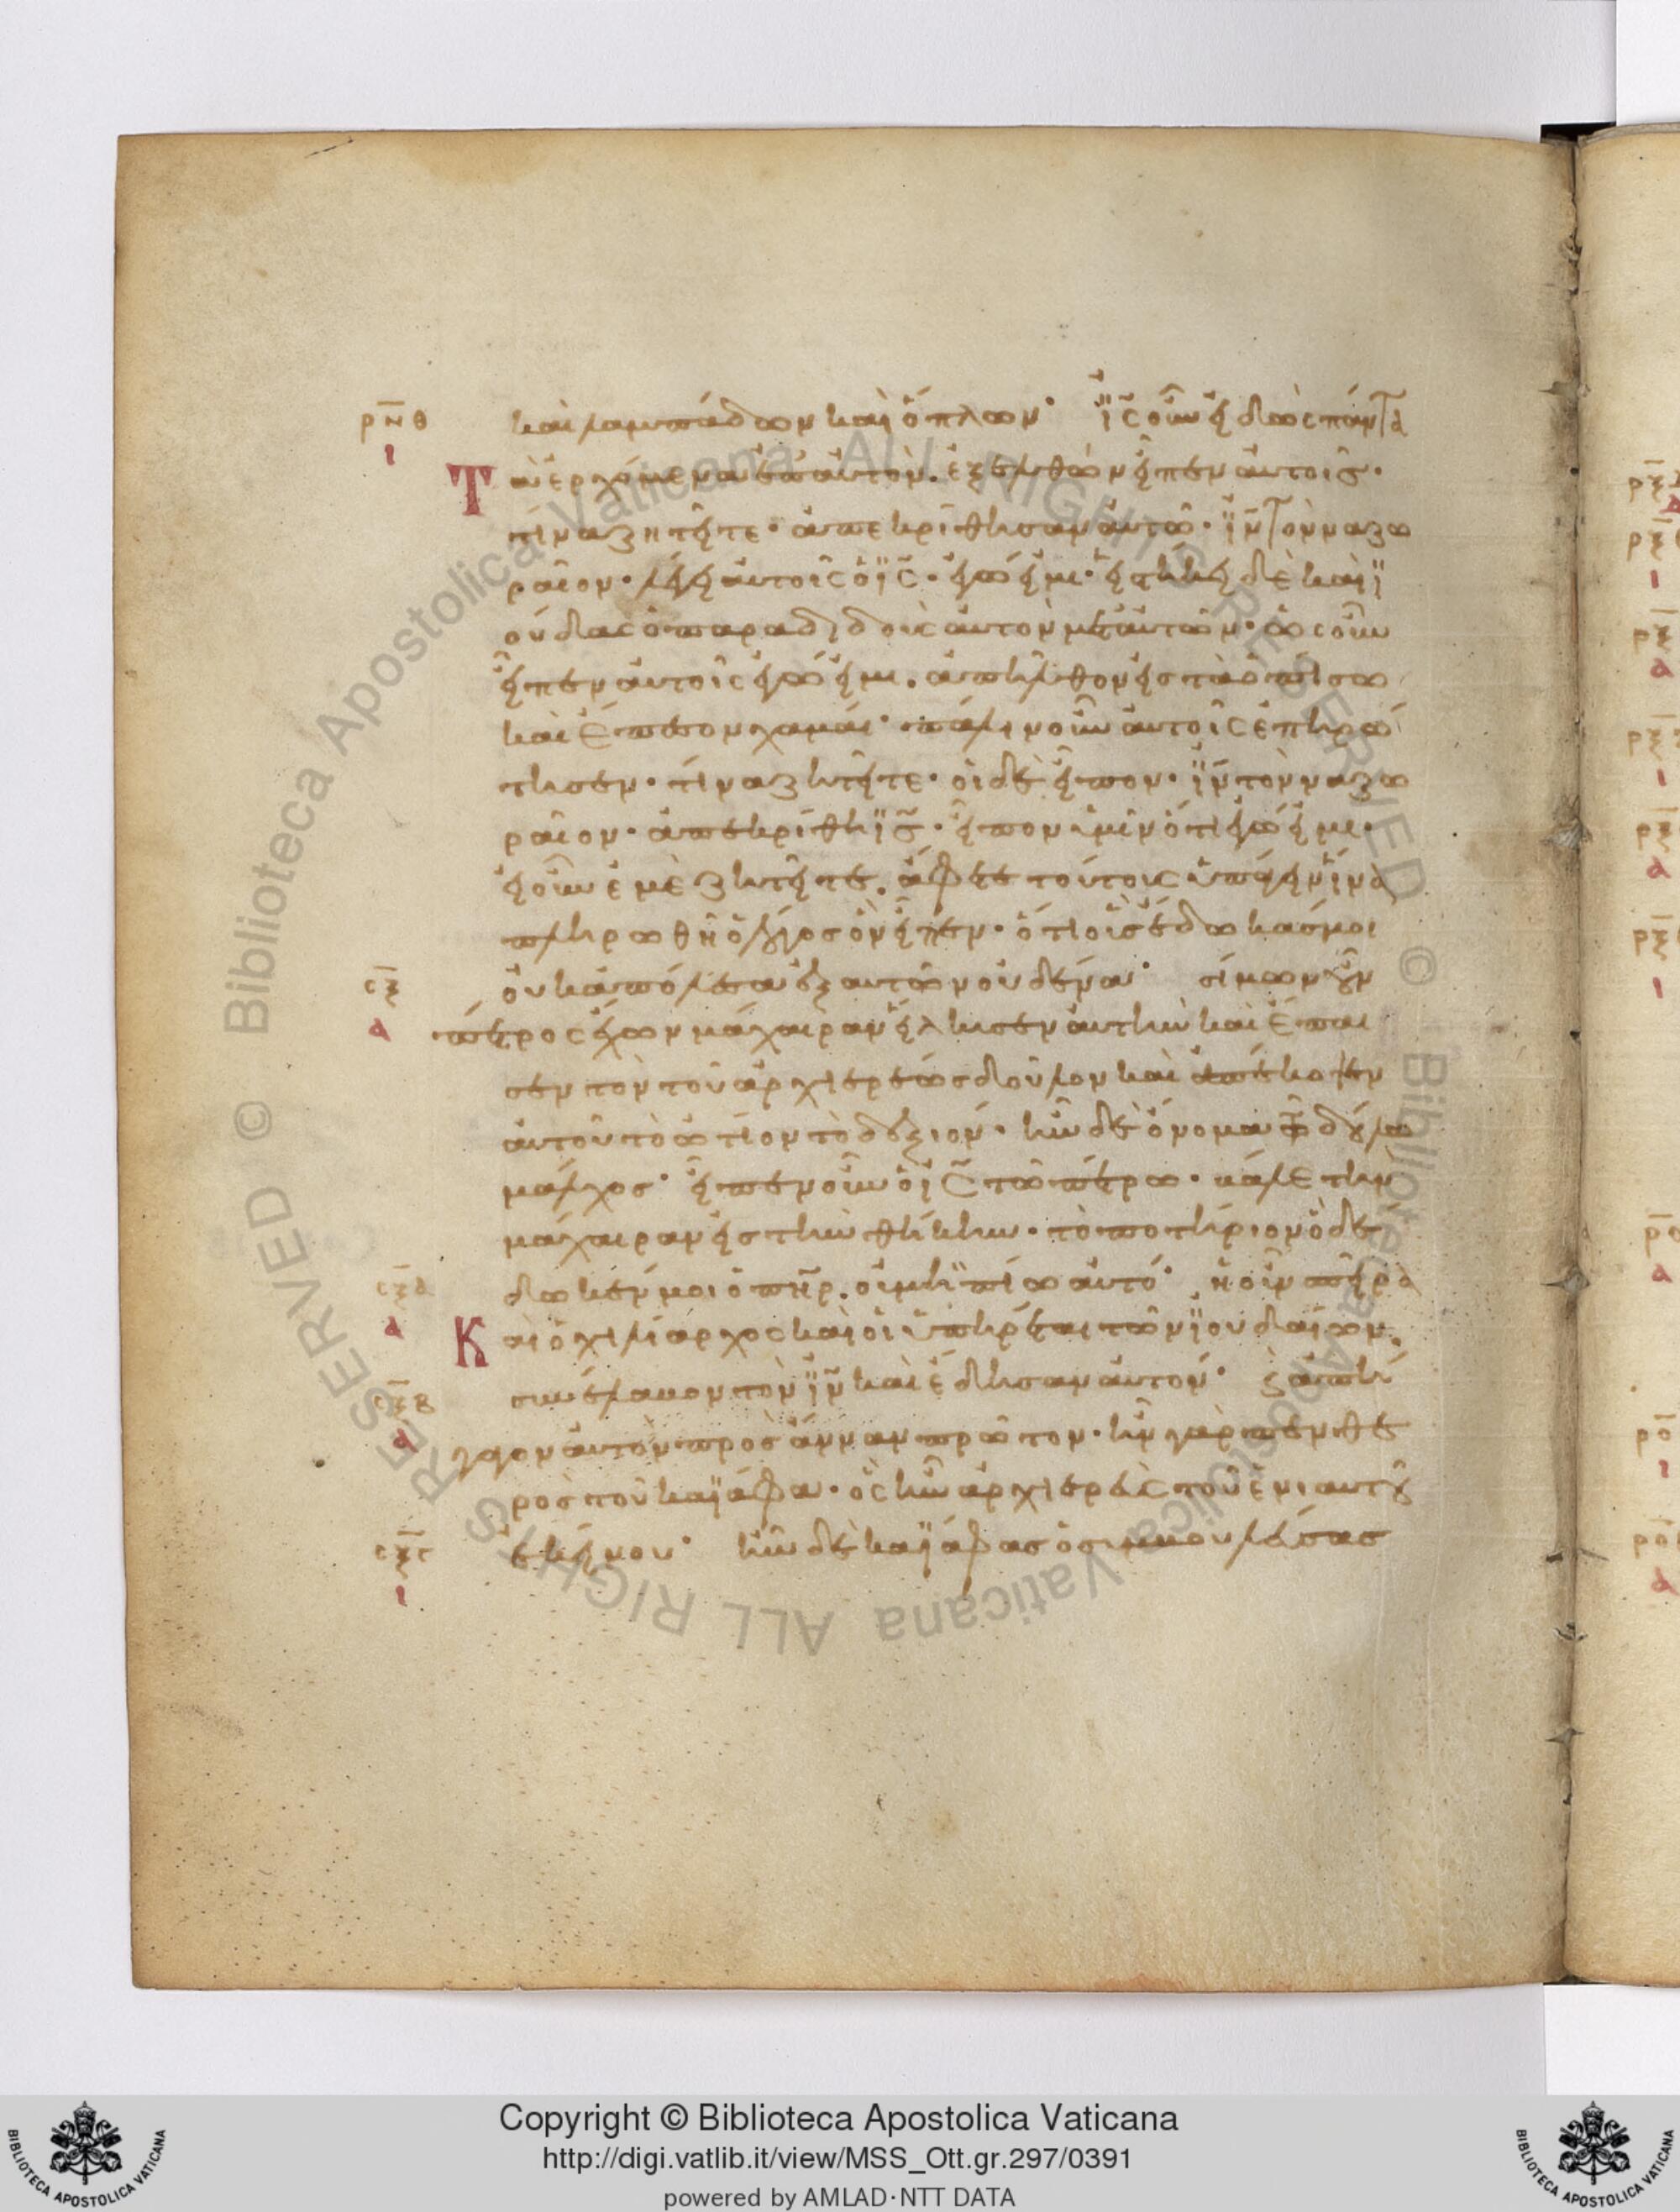 ρνθ
ι
καὶ λαμπάδων καὶ ὅπλων· ἰς οὖν εἰδὼς πάντα
Τ
ὰ ἐρχόμενα ἐπ αὐτὸν. ἐξελθὼν εἶπεν αὐτοῖς·
τίνα ζητεῖτε· ἀπεκρίθησαν αὐτῶ· ἰν τὸν ναζω
ραῖον· λέγει αὐτοῖς ὁ ις· ἐγώ εἰμι· εἱστήκει δὲ καὶ ἰ
ούδας ὁ παραδιδοὺς αὐτὸν μετ αὐτῶν· ὡς οὖν
εἶπεν αὐτοῖς ἐγώ εἰμι. ἀπῆλθον εἰς τὰ ὀπίσω
καὶ ἔπεσον χαμαί· πάλιν οὖν αὐτοῖς ἐπηρώ
τησεν· τίνα ζητεῖτε· οἱ δὲ εἶπον· ἰν τὸν ναζω
ραῖον· ἀπεκρίθη ις· εἶπον ὑμῖν ὅτι ἐγώ εἰμι·
εἰ οὖν ἐμὲ ζητεῖτε. ἄφετε τούτους ὑπάγειν ἵνα
πληρωθῆ ὁ λόγος ὃν εἶπεν· ὅτι οὓς δέδωκάς μοι
οὐκ ἀπώλεσα ἐξ αὐτῶν οὐδένα· σίμων οὖν
ρξ
α
πέτρος ἔχων μάχαιραν εἵλκυσεν αὐτὴν καὶ ἔπαι
σεν τὸν τοῦ ἀρχιερέως δοῦλον καὶ ἀπέκοψεν
αὐτοῦ τὸ ὠτίον τὸ δεξιόν· ἦν δὲ ὄνομα τῶ δούλω
μάλχος· εἶπεν οὖν ὁ ις τῶ πέτρω· βάλε τὴν
μάχαιραν εἰς τὴν θήκην· τὸ ποτήριον ὃ δέ
δωκέν μοι ὁ πηρ. οὐ μὴ πίω αὐτό· ἡ οὖν σπεῖρα
α
Κ
αὶ ὁ χιλίαρχος καὶ οἱ ὑπηρέται τῶν ἰουδαίων.
συνέλαβον τὸν ἰν καὶ ἔδησαν αὐτόν· καὶ ἀπή
α
γαγον αὐτὸν πρὸς ἄνναν πρῶτον· ἦν γὰρ πενθε
ρὸς τοῦ καϊάφα· ὃς ἦν ἀρχιερεὺς τοῦ ἐνιαυτοῦ
ἐκείνου· ἦν δὲ καϊάφας ὁ συμβουλεύσας
ι
Copyright © Biblioteca Apostolica Vaticana
http://digi.vatlib.it/view/MSS_Ott.gr.297/0391
powered by AMLAD·NTT DATA
BIBLIOTECA APOSTOLICA VATICANA
BIBLIOTECA APOSTOLICA VATICANA
© Biblioteca Apostolica Vaticana ALL RIGHTS RESERVED © Biblioteca Apostolica Vaticana ALL RIGHTS RESERVED